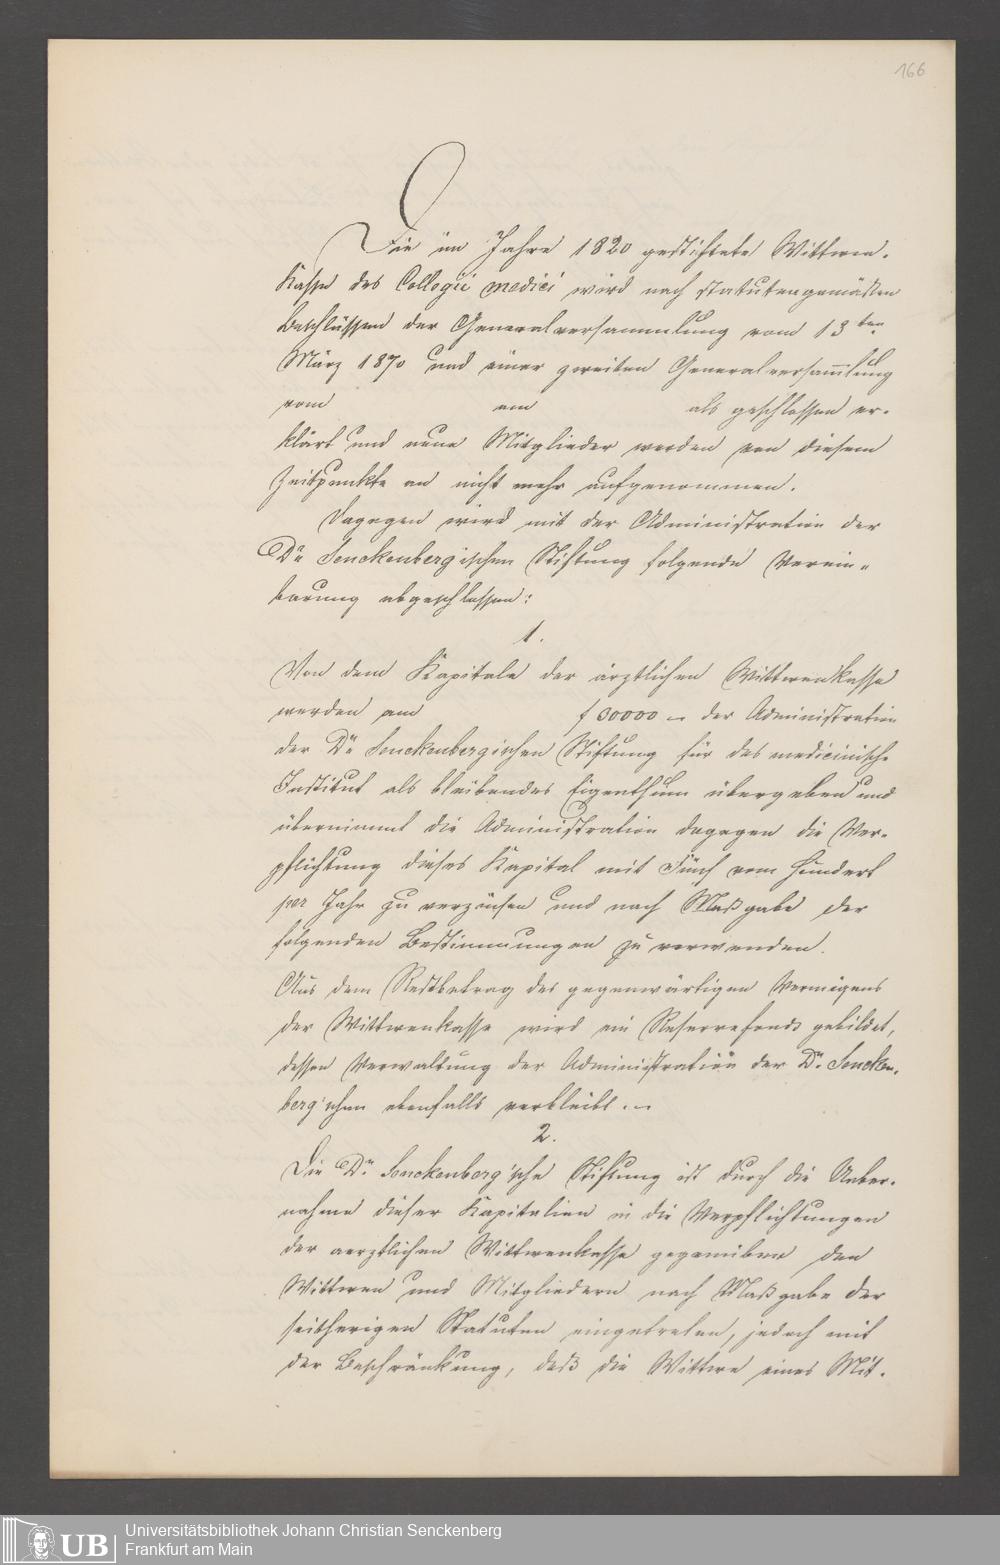 166
Die im Jahre 1820 gestiftete Wittwen-
Kasse des Collegii medici wird nach statutengemäßen
Beschlüssen der Generalversammlung vom 13ten
März 1870 und einer zweiten Generalversam̄lung
vom am als geschlossen er-
klärt und neue Mitglieder werden von diesem
Zeitpunkte an nicht mehr aufgenommen.
Dagegen wird mit der Administration der
Dr. Senckenbergischen Stiftung folgende Verein-
barung abgeschlossen:
1.
Von dem Kapitale der ärztlichen Wittwenkasse
werden am f 30000 – der Administration
der Dr. Senckenbergischen Stiftung für das medicinische
Institut als bleibendes Eigenthum übergeben und
übernimmt die Administration dagegen die Ver-
pflichtung dieses Kapital mit Fünf vom Hundert
per Jahr zu verzinsen und nach Maßgabe der
folgenden Bestimmungen zu verwenden.
Aus dem Restbetrag des gegenwärtigen Vermögens
der Wittwenkasse wird ein Reservefonds gebildet,
dessen Verwaltung der Administration der Dr. Sencken-
berg'schen ebenfalls verbleibt. –
2.
Die Dr. Senckenberg'sche Stiftung ist durch die Ueber-
nahme dieser Kapitalien in die Verpflichtungen
der aerztlichen Wittwenkasse gegenüber den
Wittwen und Mitgliedern nach Maßgabe der
seitherigen Statuten eingetreten, jedoch mit
der Beschränkung, daß die Wittwe eines Mit-
UB
Universitätsbibliothek Johann Christian Senckenberg
Frankfurt am Main